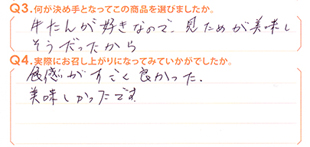 Q3.何が決め手となってこの商品を選びましたか。
牛たんが好きなので、見ためが美味し
そうだったから
Q4.実際にお召し上がりになってみていかがでしたか。
食感がすごく良かった.
美味しかったです